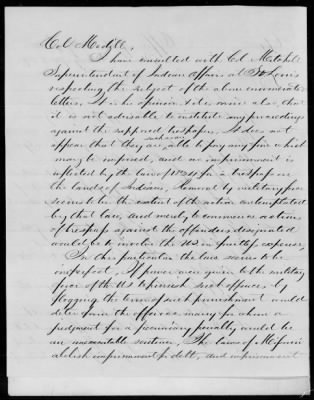 Col Medill,
I have consulted with Col Mitchell
Superintendent of Indian Affairs at St Louis
respecting the subject of the above enumerated
letters, It is his opinion & it is mine also, that
it is not advisable to institute any proceedings
against the supposed trespassers, It does not
appear that they are able to pay any fine which
may be imposed, and no imprisonment is
inflicted by the law of 1834 for a trespass on
the lands of Indians, Removal by military force
seems to be the extent of the action contemplated
by that law, and merely to commence actions
of trespass against the offenders designated
would be to involve the US in fruitless expense,
In this particular the law seems to be
imperfect, If power was given to the military
force of the US to punish such offences, by
flogging the terror of such punishment would
deter from the offence many for whom a
judgment for a pecuniary penalty would be
an unavailable sentence, The laws of Missouri
abolish imprisonment for debt, and imprisonment